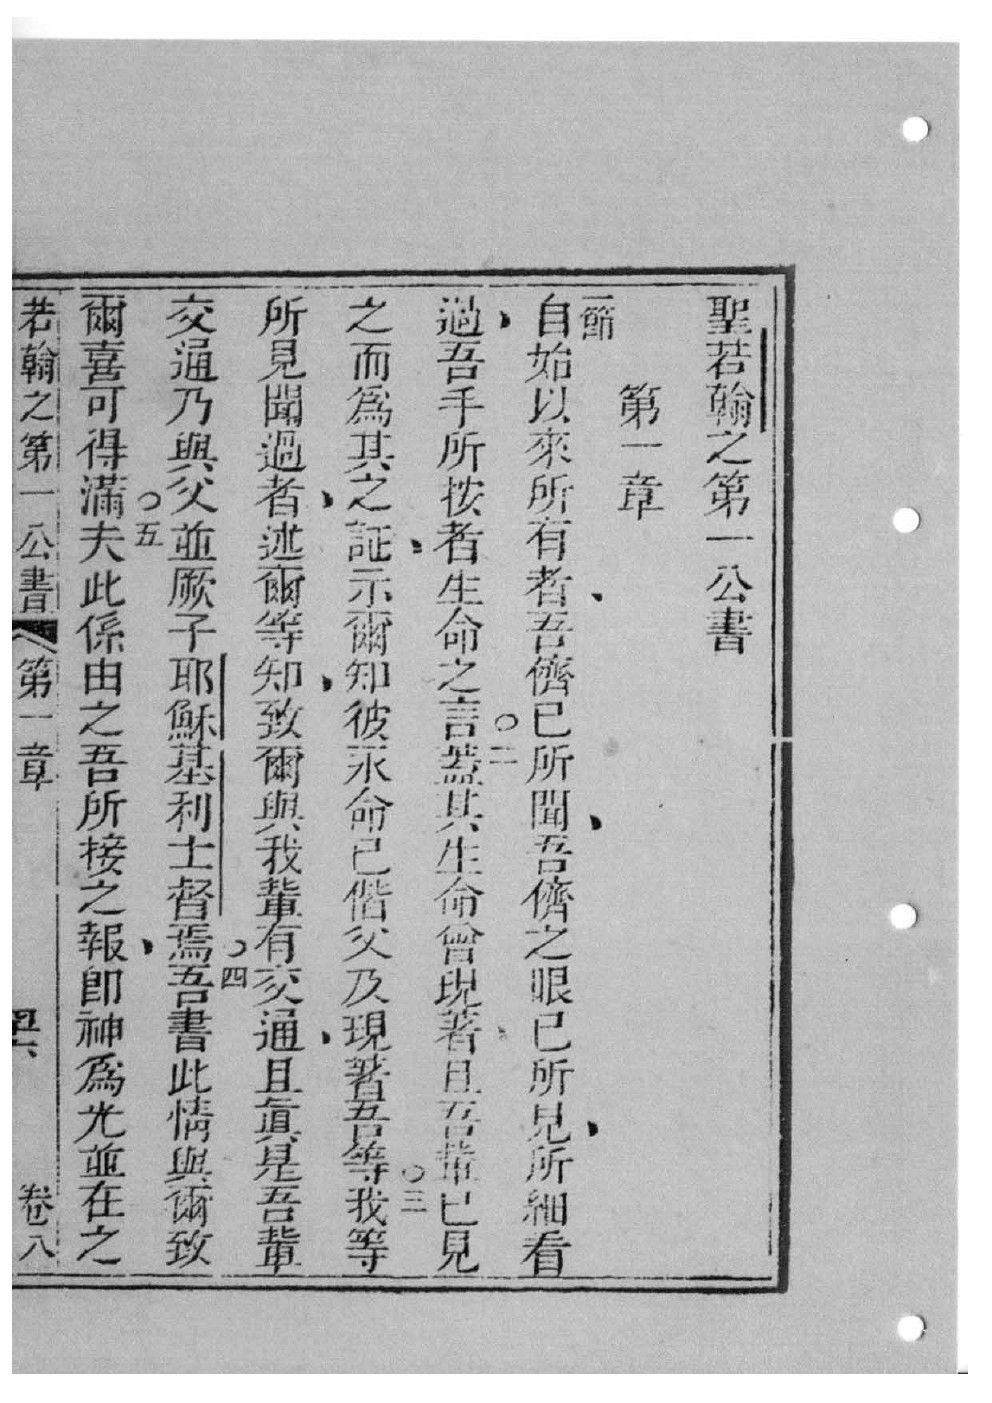 聖若翰之第一公書
第一章
一節自始以來所有者、吾儕已所聞、吾儕之眼已所見、所細看
過、吾手所按者生命之言○二蓋其生命曾現著、且吾輩已見
之而爲其之証、示爾知彼永命已偕父及現著吾等○三我等
所見聞過者、述爾等知、致爾與我輩有交通、且眞是吾輩
交通乃與父並厥子耶穌基利士督焉○四吾書此情與爾致
爾喜可得滿○五夫此係由之吾所接之報、即神爲光並在之
若翰之第一公書 第一章 卷八